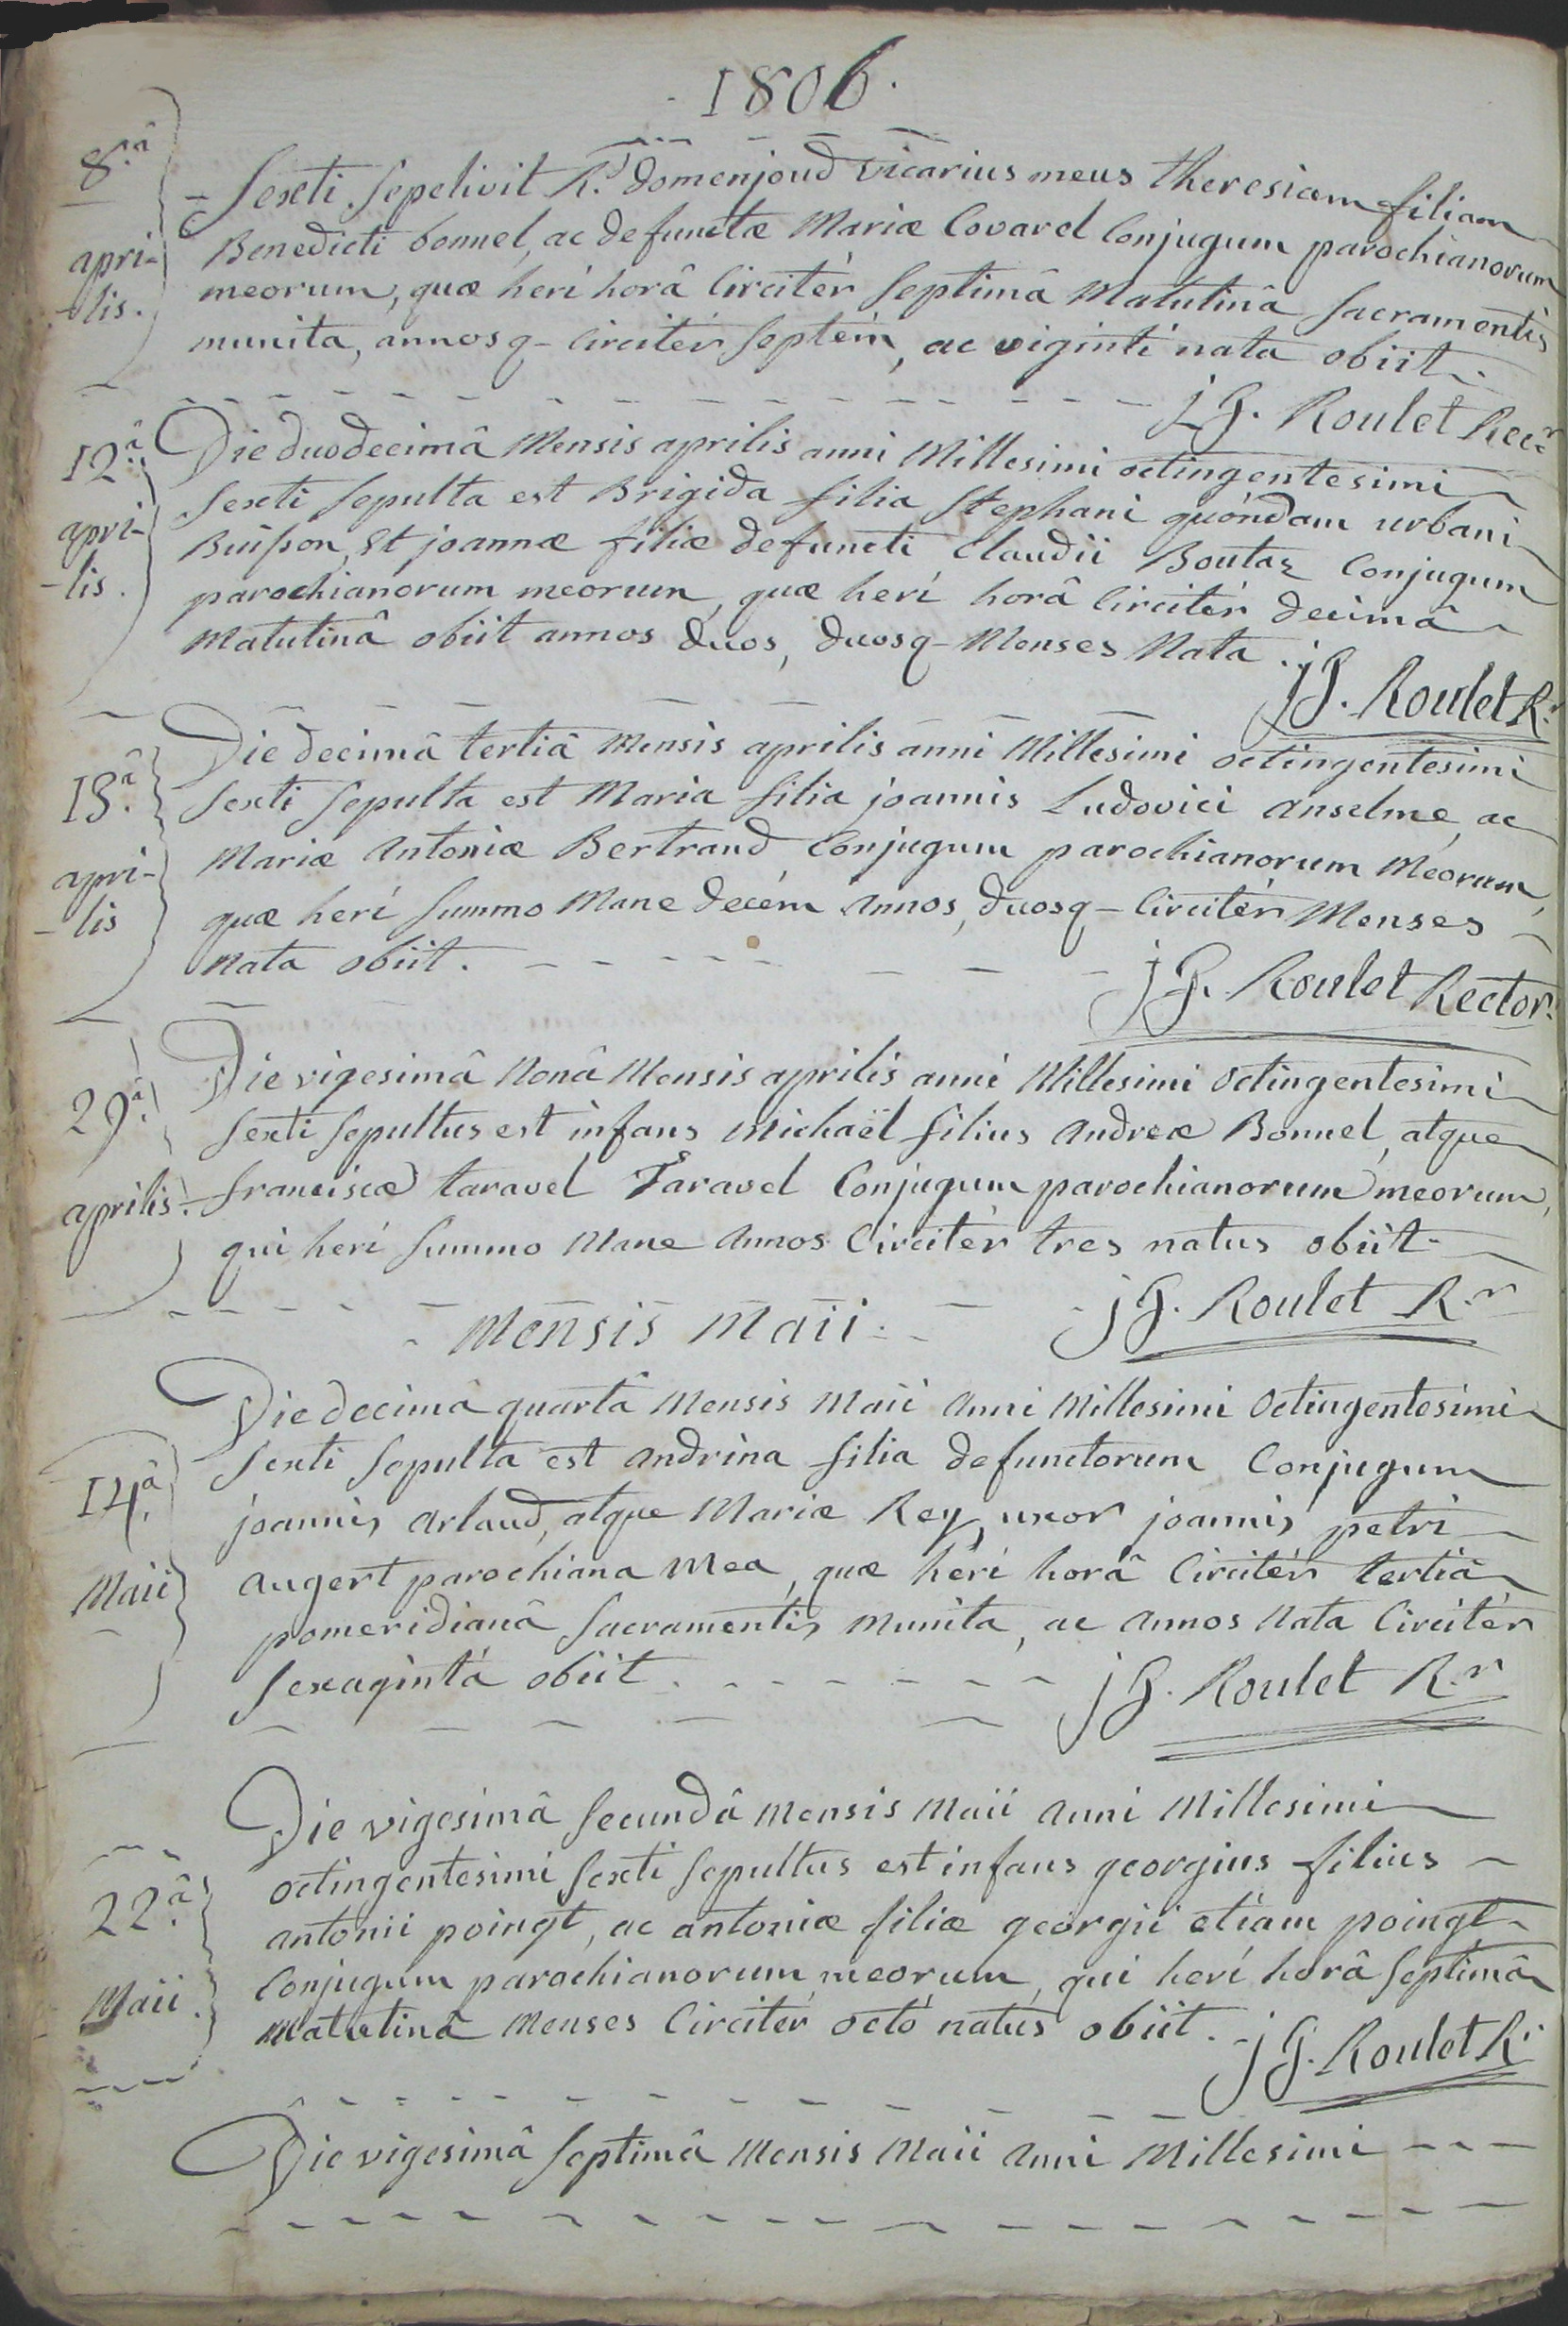 1806.
8.â apri-
-lis.
Sexti sepelivit R.d domenjoud vicarius meus theresiam filiam
Benedicti bonnel, ac defunctæ Mariæ Covarel Conjugum parochianorum
meorum, quæ herí horâ Circitér septimâ Matutinâ sacramentis
munita, annosq- Circitér septém, ac viginti nata obiit.
jG. Roulet Rec.r
12.â apri-
-lis.
Die duodecimâ Mensis aprilis anni Millesimi octingentesimi
sexti sepulta est Brigida filia stephani quóndam urbani
Buisson, Et joannæ filiæ defuncti Claudii Boutaz Conjugum
parochianorum meorum, quæ herí horâ Circitér decimâ
Matutinâ obiit annos duos, duosq- Menses Nata.
jG. Roulet R.r
13.â apri-
-lis
Die decimâ tertiâ Mensis aprilis anni Millesimi octingentesimi
sexti sepulta est Maria filia joannis Ludovici anselme, ac
Mariæ antoniæ Bertrand Conjugum parochianorum Meorum,
quæ herí summo Mane decém annos, duosq- Circitér Menses
Nata obiit.
jG. Roulet Rector.
29.â
aprilis.
Die vigesimâ Nonâ Mensis aprilis anni Millesimi octingentesimi
sexti sepultus est infans Michaël filius andreæ Bonnel, atque
franciscæ taravel Taravel Conjugum parochianorum meorum,
qui herí summo Mane annos Circitér tres natus obiit.
jG. Roulet R.r
Mensis Maii.
14.â
Maii
Die decimâ quartâ Mensis Maii anni Millesimi octingentesimi
sexti sepulta est andrina filia defunctorum Conjugum
joannis arlaud, atque Mariæ Rey, uxor joannis petri
augert parochiana Mea, quæ herí horâ Circitér tertiâ
pomeridianâ sacramentis Munita, ac annos Nata Circitér
sexagintá obiit.
jG. Roulet R.r
22.â
Maii.
Die vigesimâ secundâ Mensis Maii anni Millesimi
octingentesimi sexti sepultus est infans georgius filius
antonii poingt, ac antoniæ filiæ georgii etiam poingt
Conjugum parochianorum meorum, qui herí horâ septimâ
Matutinâ Menses Circitér octo natus obiit.
jG. Roulet R.r
Die vigesimâ septimâ Mensis Maii anni Millesimi